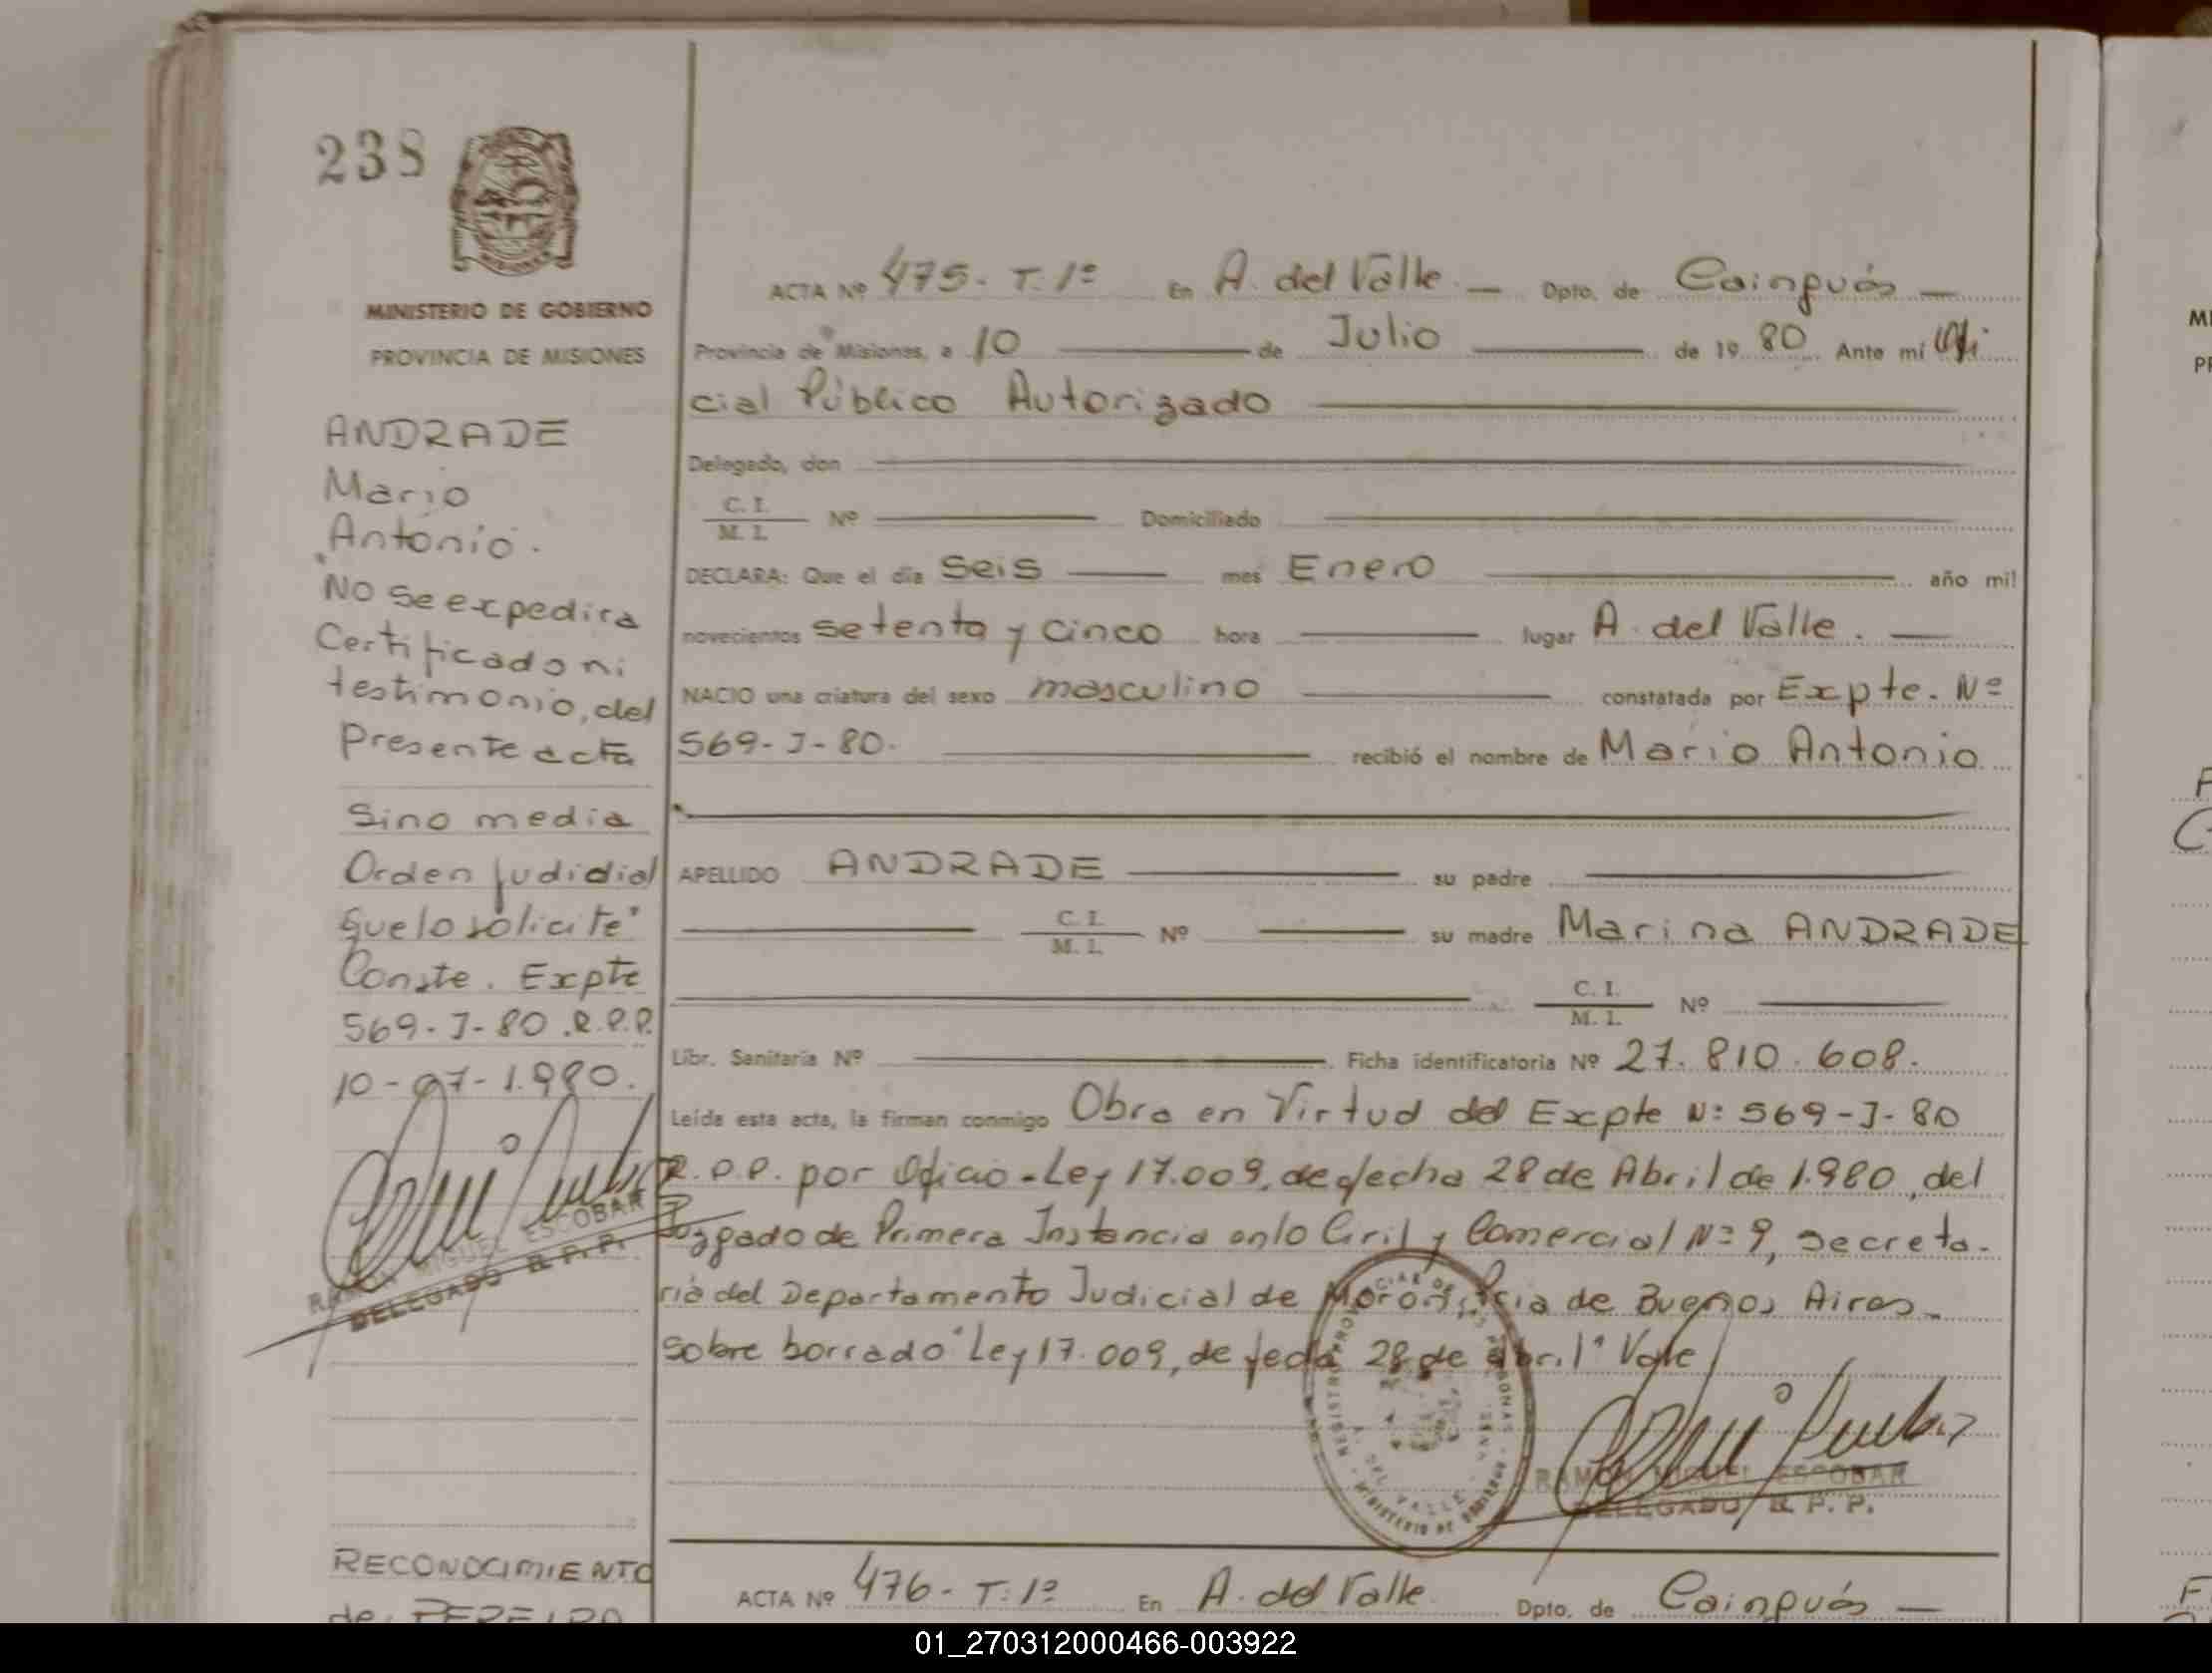 238
MISIONES
MINISTERIO DE GOBIERNO
PROVINCIA DE MISIONES
ANDRADE
Mario
Antonio.
"No se expedira
Certificado ni
testimonio, del
presente acta
Sino media
Orden judidial
que lo solicite"
Conste. Expte
569-J-80.R.P.P.
10-07-1.980.
RAMON MIGUEL ESCOBAR
DELEGADO R. P. P.
RECONOCIMIENTO
de. PEREIRA
ACTA Nº 475- T. 1º En A. del Valle Dpto. de Cainguás
Provincia de Misiones, a 10 de Julio de 19 80 Ante mí Ofi
cial Público Autorizado
Delegado, don
C. I.
M. I. Nº Domiciliado
DECLARA: Que el día Seis mes Enero año mil
novecientos setenta y cinco hora lugar A. del Valle.
NACIO una criatura del sexo masculino constatada por Expte. Nº
569-J-80. recibió el nombre de Mario Antonio
APELLIDO ANDRADE su padre
C. I.
M. I. Nº su madre Marina ANDRADE
C. I.
M. I. Nº
Libr. Sanitaria Nº Ficha identificatoria Nº 27.810.608.
Leída esta acta, la firman conmigo Obra en Virtud del Expte Nº 569-J-80
R.P.P. por Oficio-Ley 17.009, de fecha 28 de Abril de 1.980, del
Juzgado de Primera Instancia en lo Civil y Comercial Nº 9, secreta-
ria del Departamento Judicial de Morón, Pcia de Buenos Aires-
Sobre borrado "Ley 17.009, de fecha 28 de abril" Vale
RAMON MIGUEL ESCOBAR
DELEGADO R. P. P.
ACTA Nº 476- T: 1º En A. del Valle Dpto. de Cainguás
01_270312000466-003922